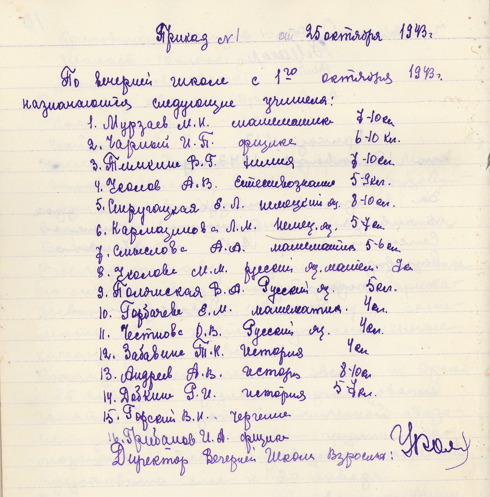 Приказ №1 от 25 октября 1943 г.
По вечерней школе с 1го октября 1943 г.
назначаются следующие учителя:
1. Мурзаев М.К. математика 7-10 кл
2. Чарный И.П. физика 6-10 кл.
3. Тимкина химия 7-10 кл
4. Уколов А.В. Естествознание 5-9 кл.
5. Е.Л. немецкий яз. 8-10 кл.
6. Кармазинова Л.М. немец. яз. 5-7 кл.
7. Смыслова А.А. математика 5-6 кл
8. Уколова М.М. русский яз. матем.
9. В.А. Русский яз. 5 кл.
10. Горбачева Е.М. математика. 4 кл.
11. Честнова О.В. Русский яз. 4 кл.
12. Забавина Т.К. История 4 кл
13. Андреев А.В. история 8-10 кл
14. Р.И. история 5-7 кл.
15. Горский В.К. черчение
16. Грибанов И.А. физика
Директор Вечерней Школы Взрослых: